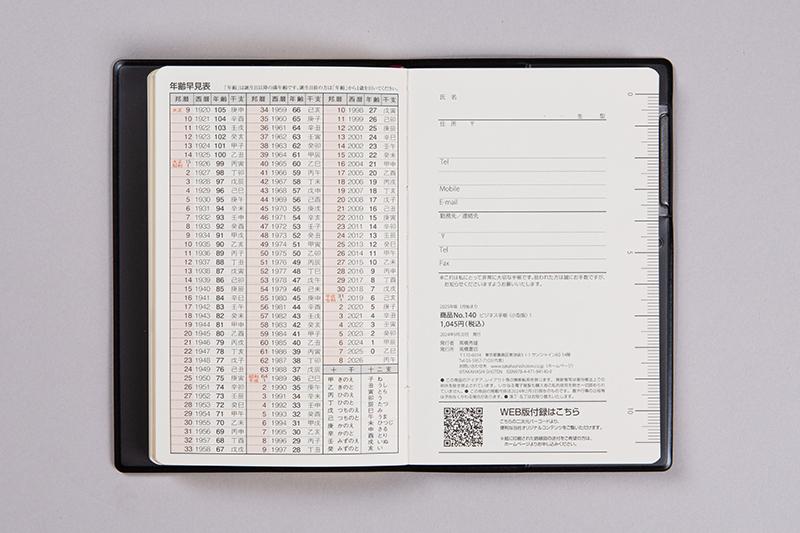 年齢早見表
「年齢」は誕生日以降の満年齢です。誕生日前の方は「年齢」から1歳を引いてください。
邦暦 西暦 年齢 干支
大正 9 1920 105 庚申
10 1921 104 辛酉
11 1922 103 壬戌
12 1923 102 癸亥
13 1924 101 甲子
14 1925 100 乙丑
大正 15 昭和 1 1926 99 丙寅
2 1927 98 丁卯
3 1928 97 戊辰
4 1929 96 己巳
5 1930 95 庚午
6 1931 94 辛未
7 1932 93 壬申
8 1933 92 癸酉
9 1934 91 甲戌
10 1935 90 乙亥
11 1936 89 丙子
12 1937 88 丁丑
13 1938 87 戊寅
14 1939 86 己卯
15 1940 85 庚辰
16 1941 84 辛巳
17 1942 83 壬午
18 1943 82 癸未
19 1944 81 甲申
20 1945 80 乙酉
21 1946 79 丙戌
22 1947 78 丁亥
23 1948 77 戊子
24 1949 76 己丑
25 1950 75 庚寅
26 1951 74 辛卯
27 1952 73 壬辰
28 1953 72 癸巳
29 1954 71 甲午
30 1955 70 乙未
31 1956 69 丙申
32 1957 68 丁酉
33 1958 67 戊戌
邦暦 西暦 年齢 干支
34 1959 66 己亥
35 1960 65 庚子
36 1961 64 辛丑
37 1962 63 壬寅
38 1963 62 癸卯
39 1964 61 甲辰
40 1965 60 乙巳
41 1966 59 丙午
42 1967 58 丁未
43 1968 57 戊申
44 1969 56 己酉
45 1970 55 庚戌
46 1971 54 辛亥
47 1972 53 壬子
48 1973 52 癸丑
49 1974 51 甲寅
50 1975 50 乙卯
51 1976 49 丙辰
52 1977 48 丁巳
53 1978 47 戊午
54 1979 46 己未
55 1980 45 庚申
56 1981 44 辛酉
57 1982 43 壬戌
58 1983 42 癸亥
59 1984 41 甲子
60 1985 40 乙丑
61 1986 39 丙寅
62 1987 38 丁卯
63 1988 37 戊辰
昭和 64 平成 1 1989 36 己巳
2 1990 35 庚午
3 1991 34 辛未
4 1992 33 壬申
5 1993 32 癸酉
6 1994 31 甲戌
7 1995 30 乙亥
8 1996 29 丙子
9 1997 28 丁丑
邦暦 西暦 年齢 干支
10 1998 27 戊寅
11 1999 26 己卯
12 2000 25 庚辰
13 2001 24 辛巳
14 2002 23 壬午
15 2003 22 癸未
16 2004 21 甲申
17 2005 20 乙酉
18 2006 19 丙戌
19 2007 18 丁亥
20 2008 17 戊子
21 2009 16 己丑
22 2010 15 庚寅
23 2011 14 辛卯
24 2012 13 壬辰
25 2013 12 癸巳
26 2014 11 甲午
27 2015 10 乙未
28 2016 9 丙申
29 2017 8 丁酉
30 2018 7 戊戌
平成 31 令和 1 2019 6 己亥
2 2020 5 庚子
3 2021 4 辛丑
4 2022 3 壬寅
5 2023 2 癸卯
6 2024 1 甲辰
7 2025 0 乙巳
8 2026 丙午
十干 十二支
甲 きのえ 子 ね
乙 きのと 丑 うし
丙 ひのえ 寅 とら
丁 ひのと 卯 う
戊 つちのえ 辰 たつ
己 つちのと 巳 み
庚 かのえ 午 うま
辛 かのと 未 ひつじ
壬 みずのえ 申 さる
癸 みずのと 酉 とり
戌 いぬ
亥 い
氏名
・ ・ 生 型
住所 〒
Tel
Mobile
E-mail
勤務先／連絡先
〒
Tel
Fax
※これは私にとって非常に大切な手帳です。拾われた方は誠にお手数ですが、
お知らせくださいますようお願いいたします。
2025年版 1月始まり
商品No.140 ビジネス手帳〈小型版〉1
1,045円（税込）
2024年9月 発行
発行者 髙橋秀雄
発行所 髙橋書店
WEB版付録はこちら
こちらの二次元バーコードより、
便利な当社オリジナルコンテンツをご覧いただけます。
0
5
10